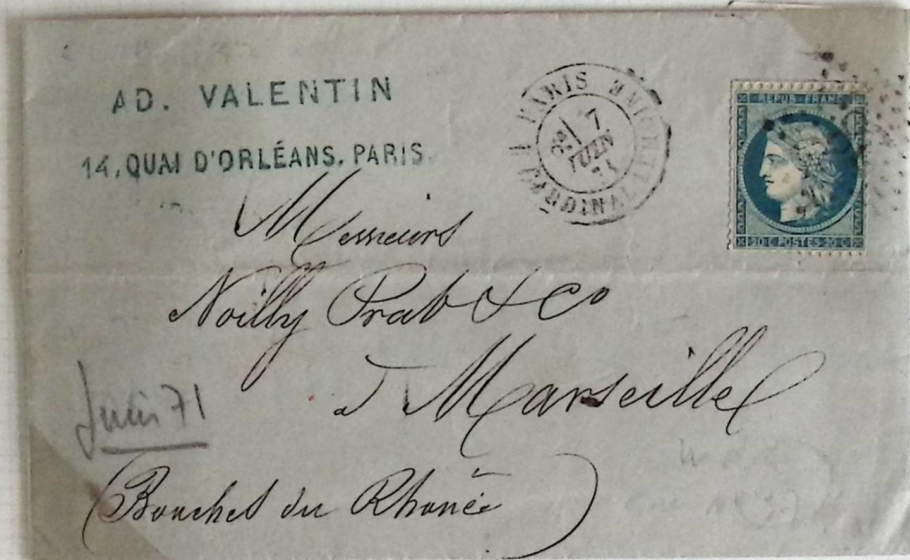 AD. VALENTIN
14, QUAI D'ORLÉANS. PARIS.
PARIS
7
JUIN
71
R. CARDINAL LEMOINE
REPUB. FRANC.
20 C POSTES 20 C
Messieurs
Noilly Prat & Co
à Marseille
Juin 71
(Bouches du Rhône)